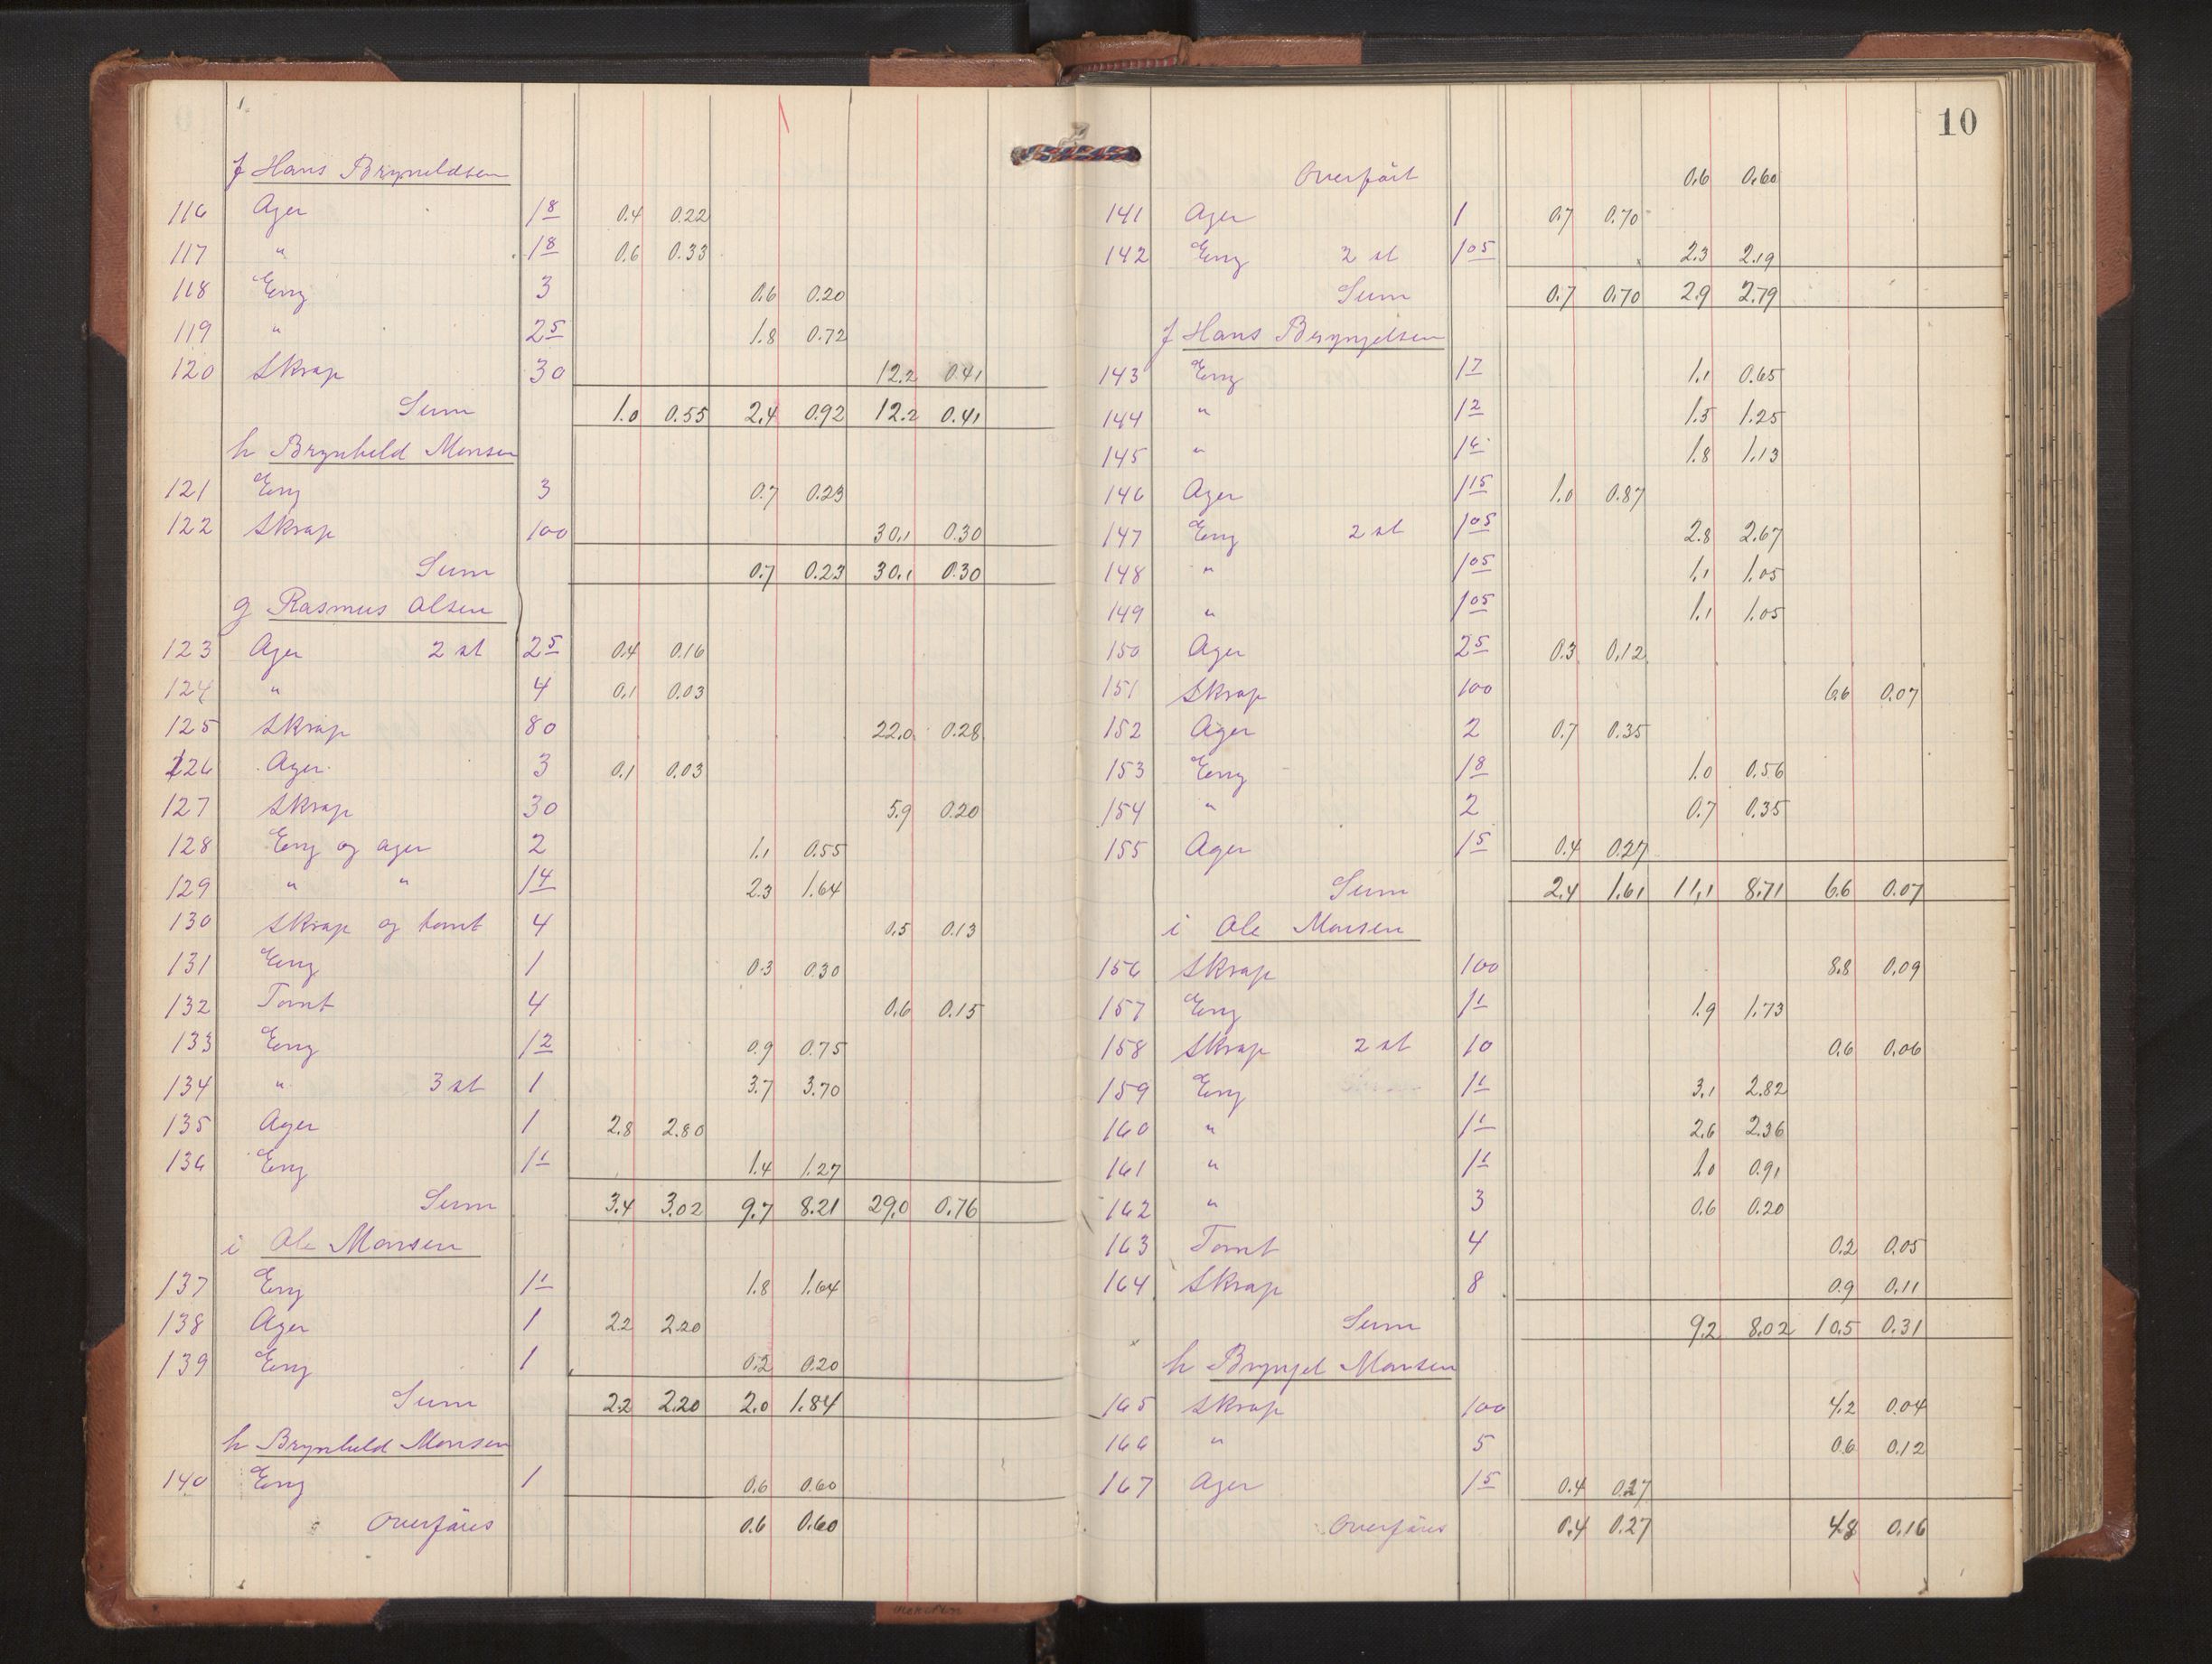 f Hans Brynildsen
116 Ager 1 8 0.4 0.22
117 " 1 8 0.6 0.33
118 Eng 3 0.6 0.20
119 " 2 5 1.8 0.72
120 Skrap 30 12.2 0.41
Sum 1.0 0.55 2.4 0.92 12.2 0.41
h Brynhild Monsen
121 Eng 3 0.7 0.23
122 Skrap 100 30.1 0.30
Sum 0.7 0.23 30.1 0.30
g Rasmus Olsen
123 Ager 2 st 2 5 0.4 0.16
124 " 4 0.1 0.03
125 Skrap 80 22.0 0.28
126 Ager 3 0.1 0.03
127 Skrap 30 5.9 0.20
128 Eng og ager 2 1.1 0.55
129 " " 1 4 2.3 1.64
130 Skrap og tomt 4 0.5 0.13
131 Eng 1 0.3 0.30
132 Tomt 4 0.6 0.15
133 Eng 1 2 0.9 0.75
134 " 3 st 1 3.7 3.70
135 Ager 1 2.8 2.80
136 Eng 1 1 1.4 1.27
Sum 3.4 3.02 9.7 8.21 29.0 0.76
i Ole Monsen
137 Eng 1 1 1.8 1.64
138 Ager 1 2.2 2.20
139 Eng 1 0.2 0.20
Sum 2.2 2.20 2.0 1.84
h Brynhild Monsen
140 Eng 1 0.6 0.60
Overføres 0.6 0.60
10
Overført 0.6 0.60
141 Ager 1 0.7 0.70
142 Eng 2 st 1 05 2.3 2.19
Sum 0.7 0.70 2.9 2.79
f Hans Brynjelsen
143 Eng 1 7 1.1 0.65
144 " 1 2 1.5 1.25
145 " 1 6 1.8 1.13
146 Ager 1 15 1.0 0.87
147 Eng 2 st 1 05 2.8 2.67
148 " 1 05 1.1 1.05
149 " 1 05 1.1 1.05
150 Ager 2 5 0.3 0.12
151 Skrap 100 6.6 0.07
152 Ager 2 0.7 0.35
153 Eng 1 8 1.0 0.56
154 " 2 0.7 0.35
155 Ager 1 5 0.4 0.27
Sum 2.4 1.61 11.1 8.71 6.6 0.07
i Ole Monsen
156 Skrap 100 8.8 0.09
157 Eng 1 1 1.9 1.73
158 Skrap 2 st 10 0.6 0.06
159 Eng 1 1 3.1 2.82
160 " 1 1 2.6 2.36
161 " 1 1 1.0 0.91
162 " 3 0.6 0.20
163 Tomt 4 0.2 0.05
164 Skrap 8 0.9 0.11
Sum 9.2 8.02 10.5 0.31
h Brynjel Monsen
165 Skrap 100 4.2 0.04
166 " 5 0.6 0.12
167 Ager 1 5 0.4 0.27
Overføres 0.4 0.27 4.8 0.16